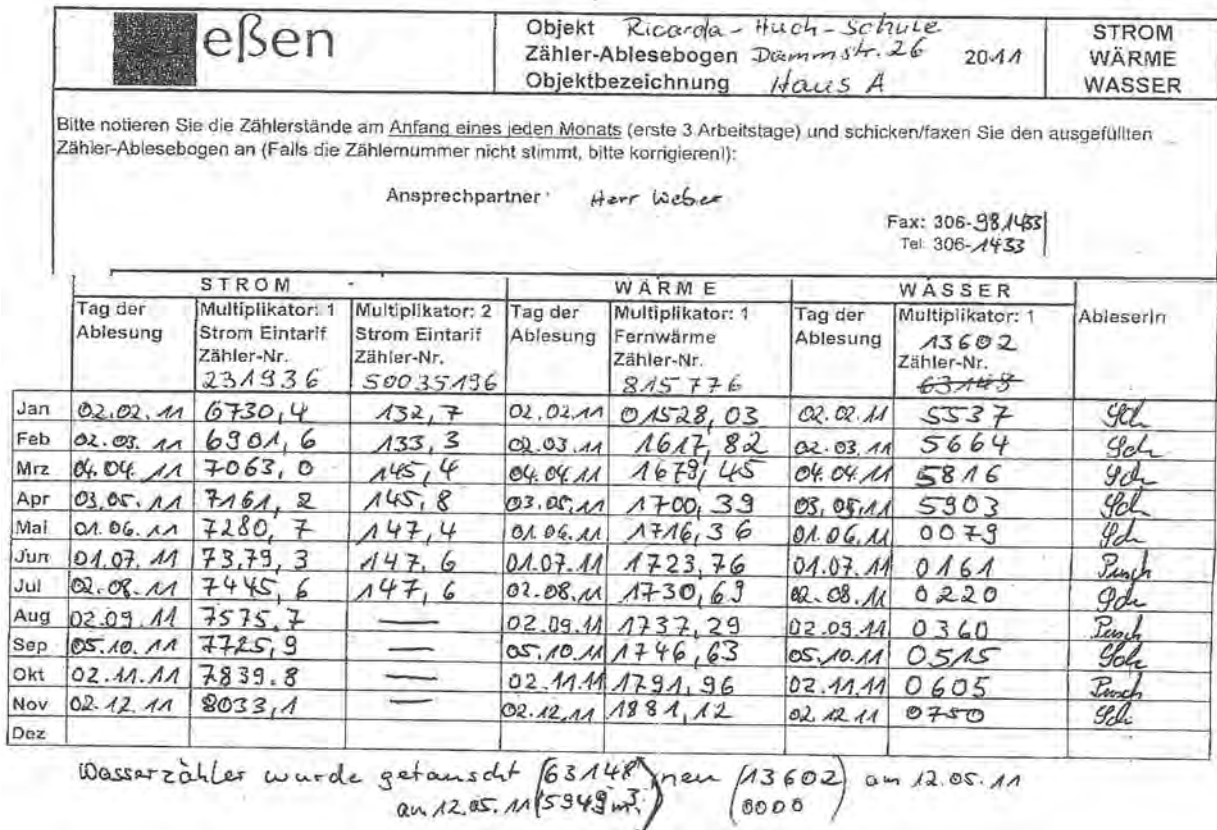 eßen
Objekt Ricarda-Huch-Schule
Zähler-Ablesebogen Dammstr. 26 2011
Objektbezeichnung Haus A
STROM
WÄRME
WASSER
Bitte notieren Sie die Zählerstände am Anfang eines jeden Monats (erste 3 Arbeitstage) und schicken/faxen Sie den ausgefüllten
Zähler-Ablesebogen an (Falls die Zählernummer nicht stimmt, bitte korrigieren!):
Ansprechpartner Herr Weber
Fax: 306-981433
Tel: 306-1433
STROM WÄRME WASSER
Tag der Ablesung Multiplikator: 1 Strom Eintarif Zähler-Nr. 231936 Multiplikator: 2 Strom Eintarif Zähler-Nr. 50035196 Tag der Ablesung Multiplikator: 1 Fernwärme Zähler-Nr. 815776 Tag der Ablesung Multiplikator: 1 13602 Zähler-Nr. 63148 AbleserIn
Jan 02.02.11 6730,4 132,7 02.02.11 01528,03 02.02.11 5537 Sch
Feb 02.03.11 6901,6 133,3 02.03.11 1617,82 02.03.11 5664 Sch
Mrz 04.04.11 7063,0 145,4 04.04.11 1679,45 04.04.11 5816 Sch
Apr 03.05.11 7161,2 145,8 03.05.11 1700,39 03.05.11 5903 Sch
Mai 01.06.11 7280,7 147,4 01.06.11 1716,36 01.06.11 0079 Sch
Jun 01.07.11 7379,3 147,6 01.07.11 1723,76 01.07.11 0161 Pusch
Jul 02.08.11 7445,6 147,6 02.08.11 1730,69 02.08.11 0220 Sch
Aug 02.09.11 7575,7 — 02.09.11 1737,29 02.09.11 0360 Pusch
Sep 05.10.11 7725,9 — 05.10.11 1746,63 05.10.11 0515 Sch
Okt 02.11.11 7839.8 — 02.11.11 1791,96 02.11.11 0605 Pusch
Nov 02.12.11 8033,1 — 02.12.11 1881,12 02.12.11 0750 Sch
Dez
Wasserzähler wurde getauscht (63148) neu (13602) am 12.05.11
am 12.05.11 (5949 m³) (0000)